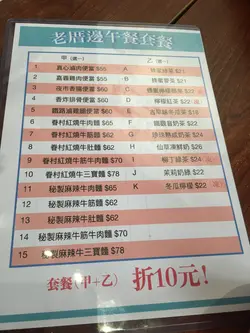 老厝邊午餐套餐
甲(選一) 乙(選一)
1 真心滷肉便當 $55 A 蜂蜜綠茶 $21
2 嘉義雞肉便當 $55 B 蜂蜜麥茶 $21
3 夜市香腸便當 $60 C 蜂蜜檸檬 $22
4 香炸排骨便當 $60 D 檸檬紅茶 $22
5 鐵路滷雞腿便當 $65 E
6 眷村紅燒牛肉麵 $65 F 鐵觀音奶茶 $22
7 眷村紅燒牛筋麵 $62 G 奶茶 $24
8 眷村紅燒牛肚麵 $62 H 仙草凍鮮奶 $26
9 眷村紅燒牛筋牛肉麵 $70 I 柳丁綠茶 $24
10 眷村紅燒牛三寶麵 $78 J 茉莉奶綠 $21
11 秘製麻辣牛肉麵 $65 K 冬瓜檸檬 $22
12 秘製麻辣牛筋麵 $62
13 秘製麻辣牛肚麵 $62
14 秘製麻辣牛筋牛肉麵 $70
15 秘製麻辣牛三寶麵 $78
套餐(甲+乙) 折10元!